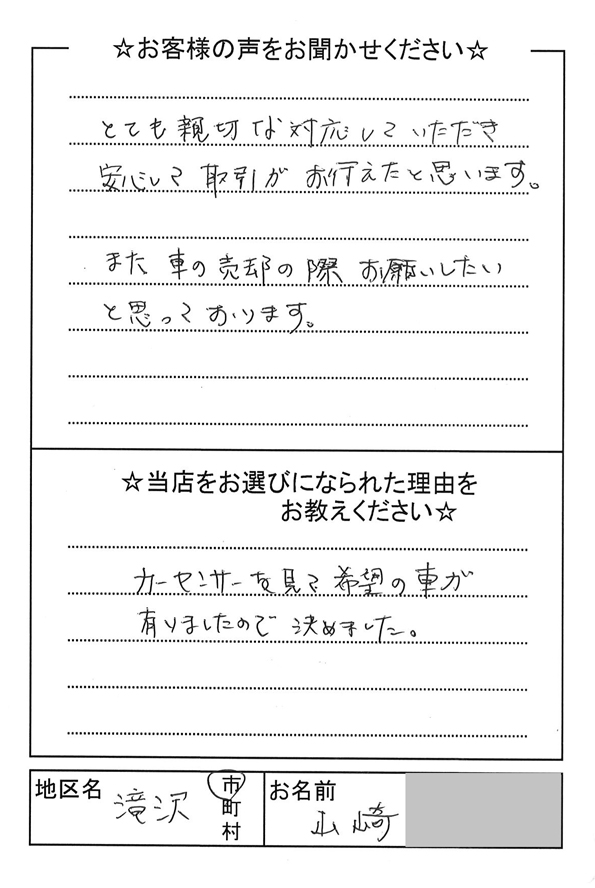 ☆お客様の声をお聞かせください☆
とても親切な対応していただき
安心して取引がお行えたと思います。
また車の売却の際お願いしたい
と思っております。
☆当店をお選びになられた理由を
お教えください☆
カーセンサーを見て希望の車が
有りましたので決めました。
地区名 滝沢 市町村 お名前 山崎